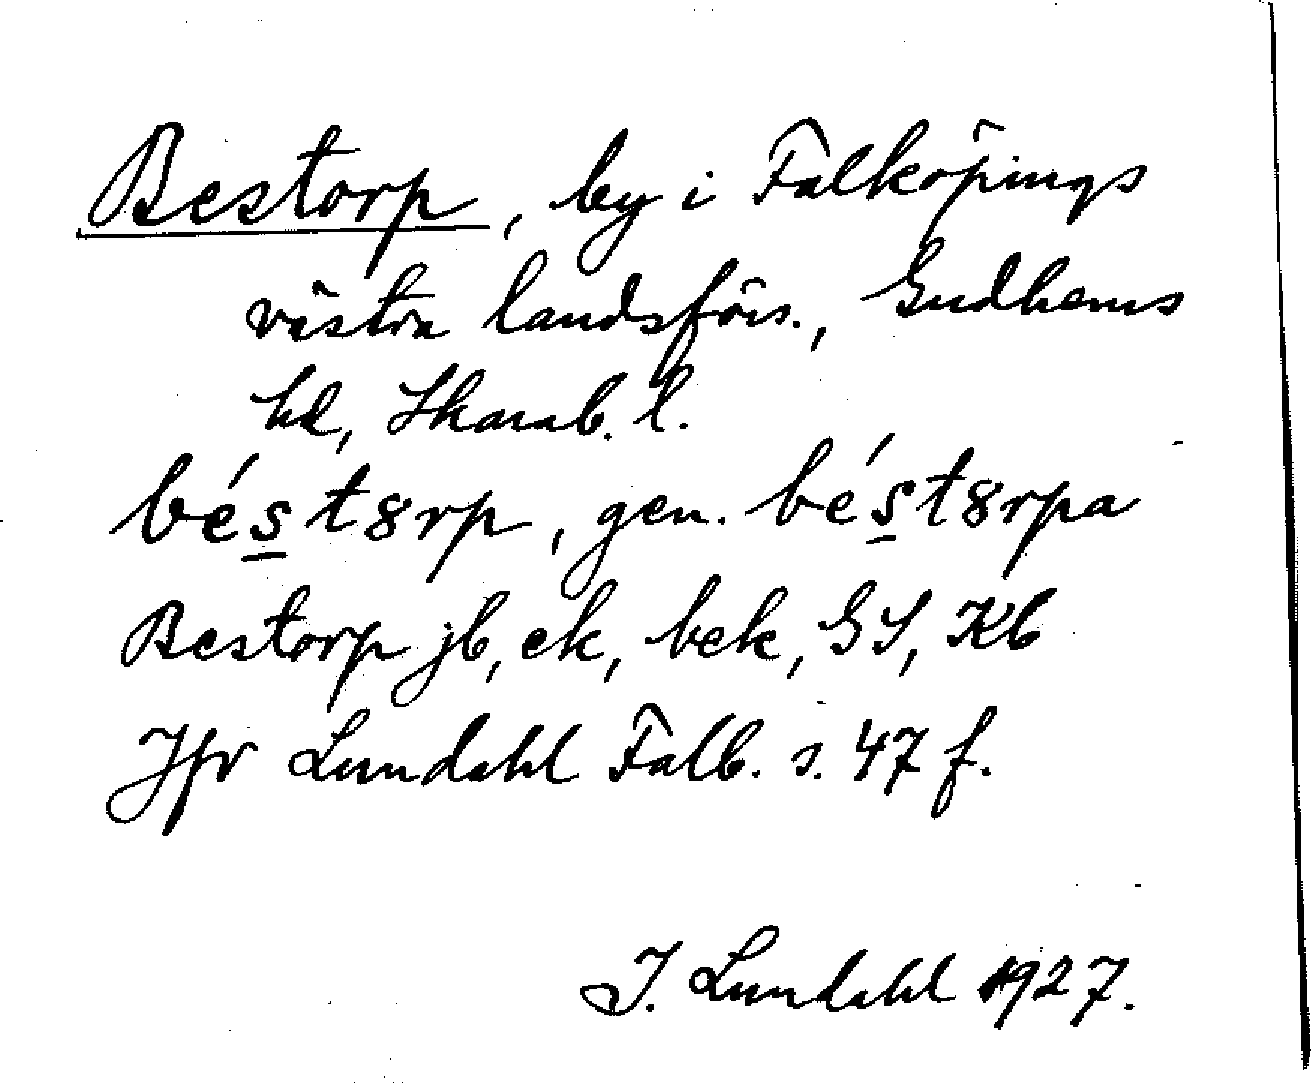 Bestorp, by i Falköpings
västra landsförs., Gudhems
hd, Skarab. l.
bés̲t8rp, gen. bés̲t8rpa
Bestorp jb, ek, bek, GS, Kb
Jfr Lundahl Falb. s. 47 f.
I. Lundahl 1927.